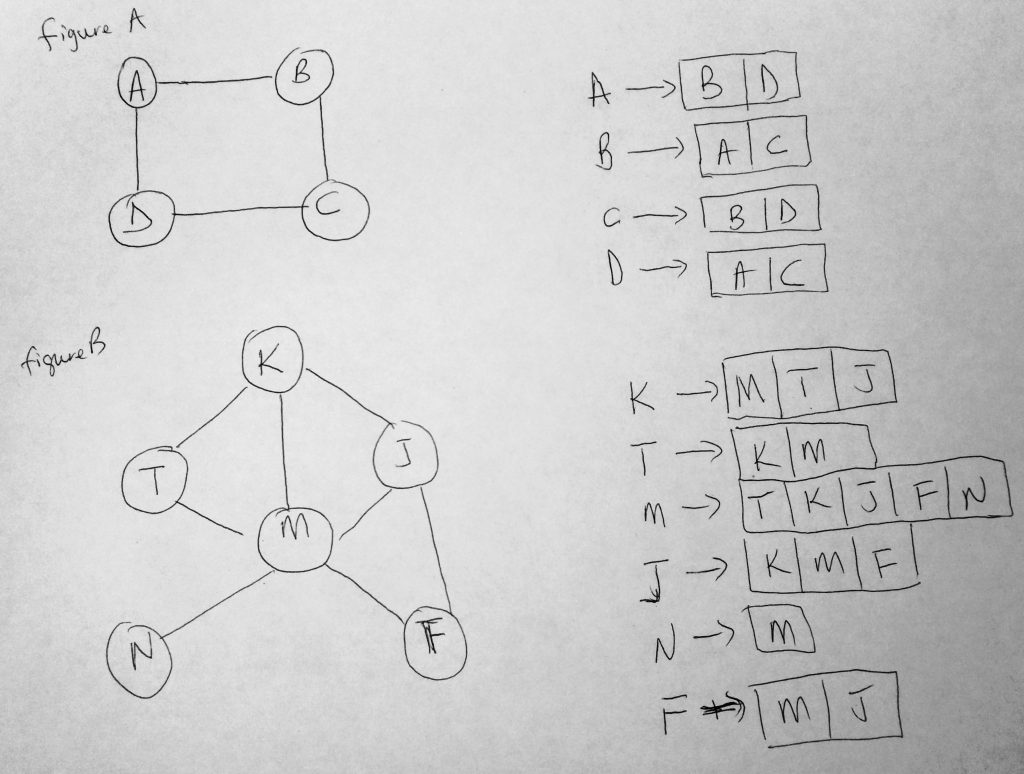 figure A
A B
D C
A → B D
B → A C
C → B D
D → A C
figure B
K
T J
M
N F
K → M T J
T → K M
M → T K J F N
J → K M F
N → M
F → M J